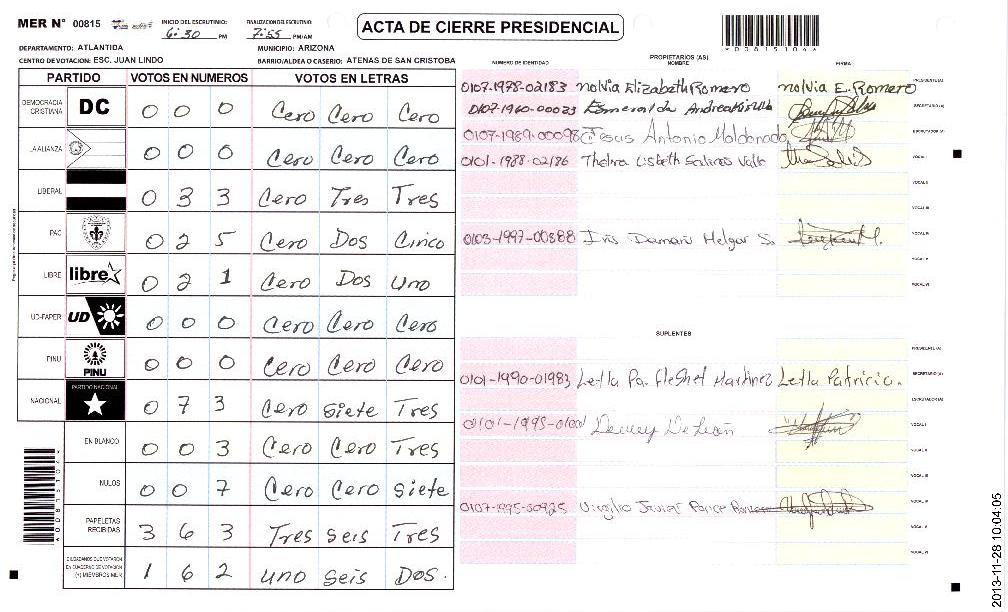 MER N° 00815
INICIO DEL ESCRUTINIO:
6:30 PM
FINALIZACION DEL ESCRUTINIO:
7:55 PM/AM
ACTA DE CIERRE PRESIDENCIAL
DEPARTAMENTO: ATLANTIDA
MUNICIPIO: ARIZONA
CENTRO DE VOTACION: ESC. JUAN LINDO
BARRIO/ALDEA O CASERIO: ATENAS DE SAN CRISTOBA
PARTIDO VOTOS EN NUMEROS VOTOS EN LETRAS
DEMOCRACIA CRISTIANA DC 0 0 0 Cero Cero Cero
LA ALIANZA 0 0 0 Cero Cero Cero
LIBERAL 0 3 3 Cero Tres Tres
PAC 0 2 5 Cero Dos Cinco
LIBRE libre 0 2 1 Cero Dos uno
UD-FAPER UD 0 0 0 Cero Cero Cero
PINU PINU 0 0 0 Cero Cero Cero
NACIONAL PARTIDO NACIONAL 0 7 3 Cero siete Tres
EN BLANCO 0 0 3 Cero Cero Tres
NULOS 0 0 7 Cero Cero siete
PAPELETAS RECIBIDAS 3 6 3 Tres seis Tres
CIUDADANOS QUE VOTARON EN CUADERNO DE VOTACION (+) MIEMBROS MER 1 6 2 uno seis Dos.
PROPIETARIOS (AS)
NUMERO DE IDENTIDAD NOMBRE FIRMA
0107-1978-02183 nolvia Elizabeth Romero nolvia E. Romero PRESIDENTE (A)
0107-1960-00033 Esmeralda SECRETARIO (A)
0107-1989-00098 Jesus Antonio Maldonado ESCRUTADOR (A)
0101-1988-02186 Thelma Lisbeth Salinas Valle VOCAL I
VOCAL II
VOCAL III
0103-1997-00888 Iris Damari Melgar S. VOCAL IV
VOCAL V
VOCAL VI
SUPLENTES
PRESIDENTE (A)
0101-1990-01983 Martinez Letla Patricia. SECRETARIO (A)
ESCRUTADOR (A)
0101-1995- De León VOCAL I
VOCAL II
VOCAL III
0107-1995-00925 Virgilio Javier Ponce VOCAL IV
VOCAL V
VOCAL VI
2013-11-28 10:04:05